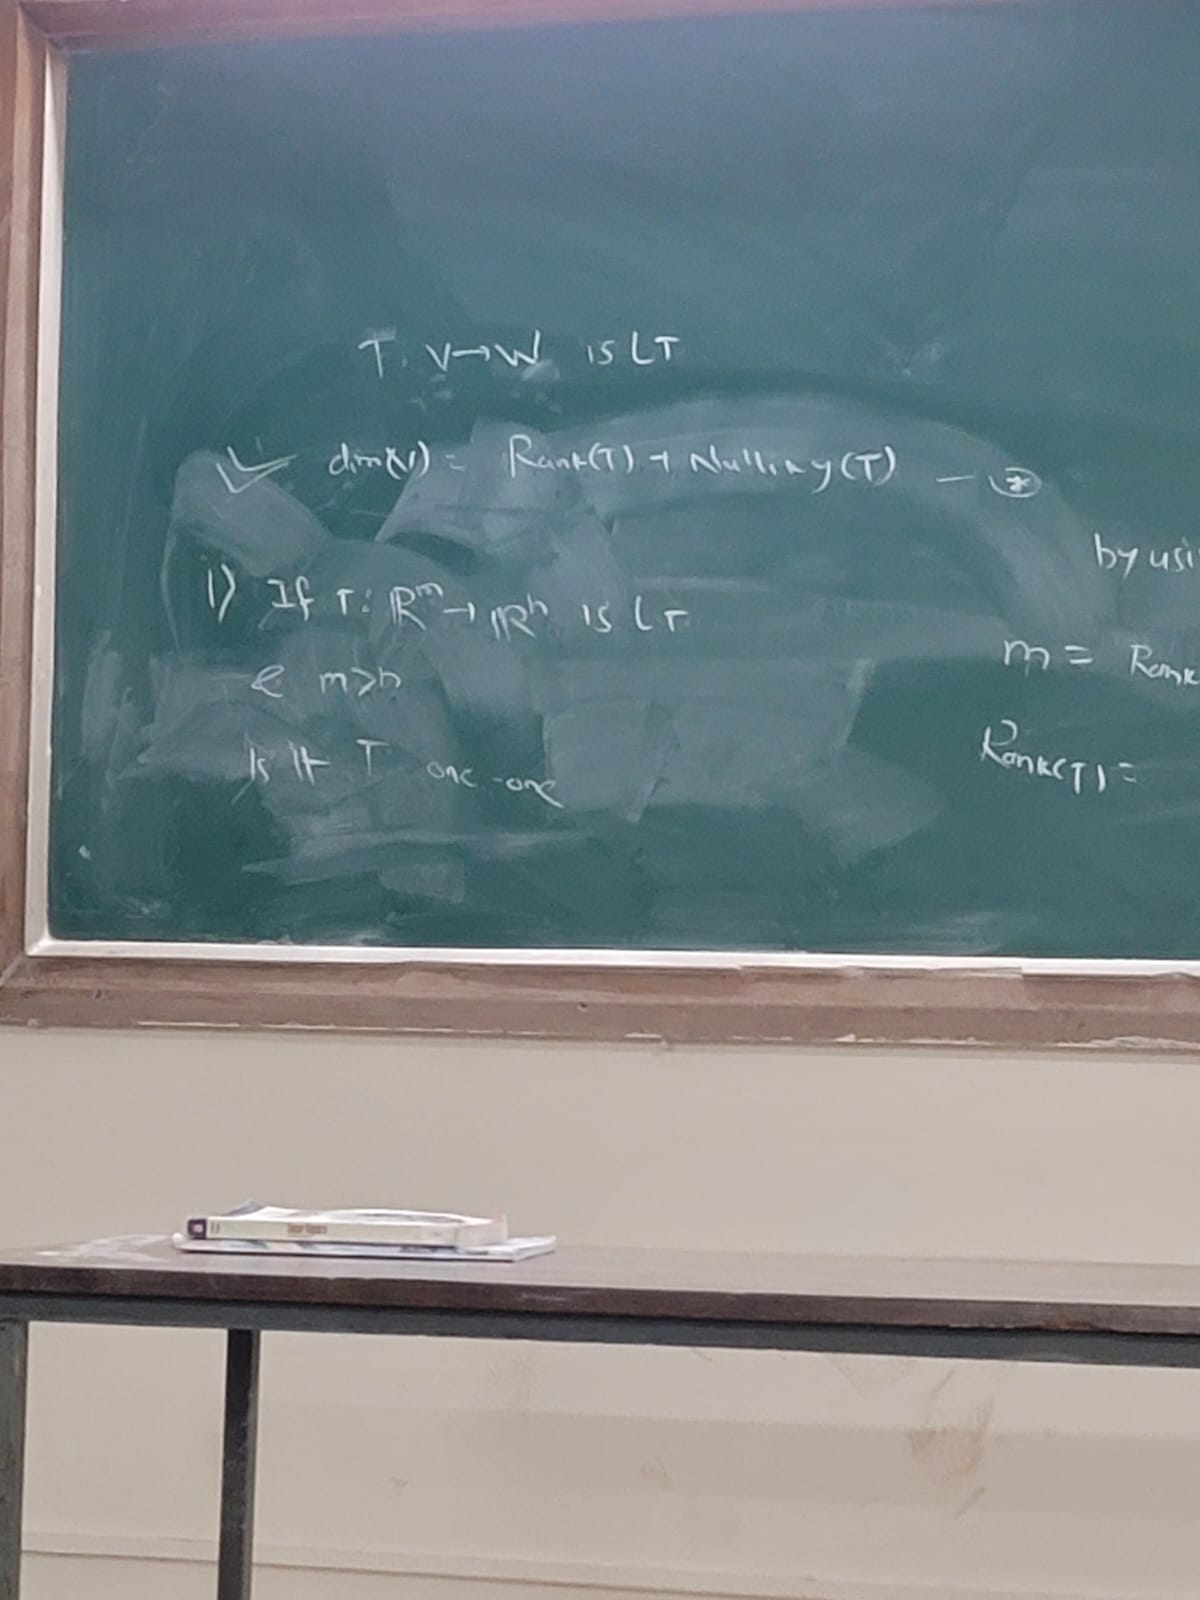 T: V→W is LT
dim(V) = Rank(T) + Nullity(T) — *
1) If T: ℝᵐ → ℝⁿ is LT
& m>n
Is it T one-one
by usi
m = Rank
Rank(T) =